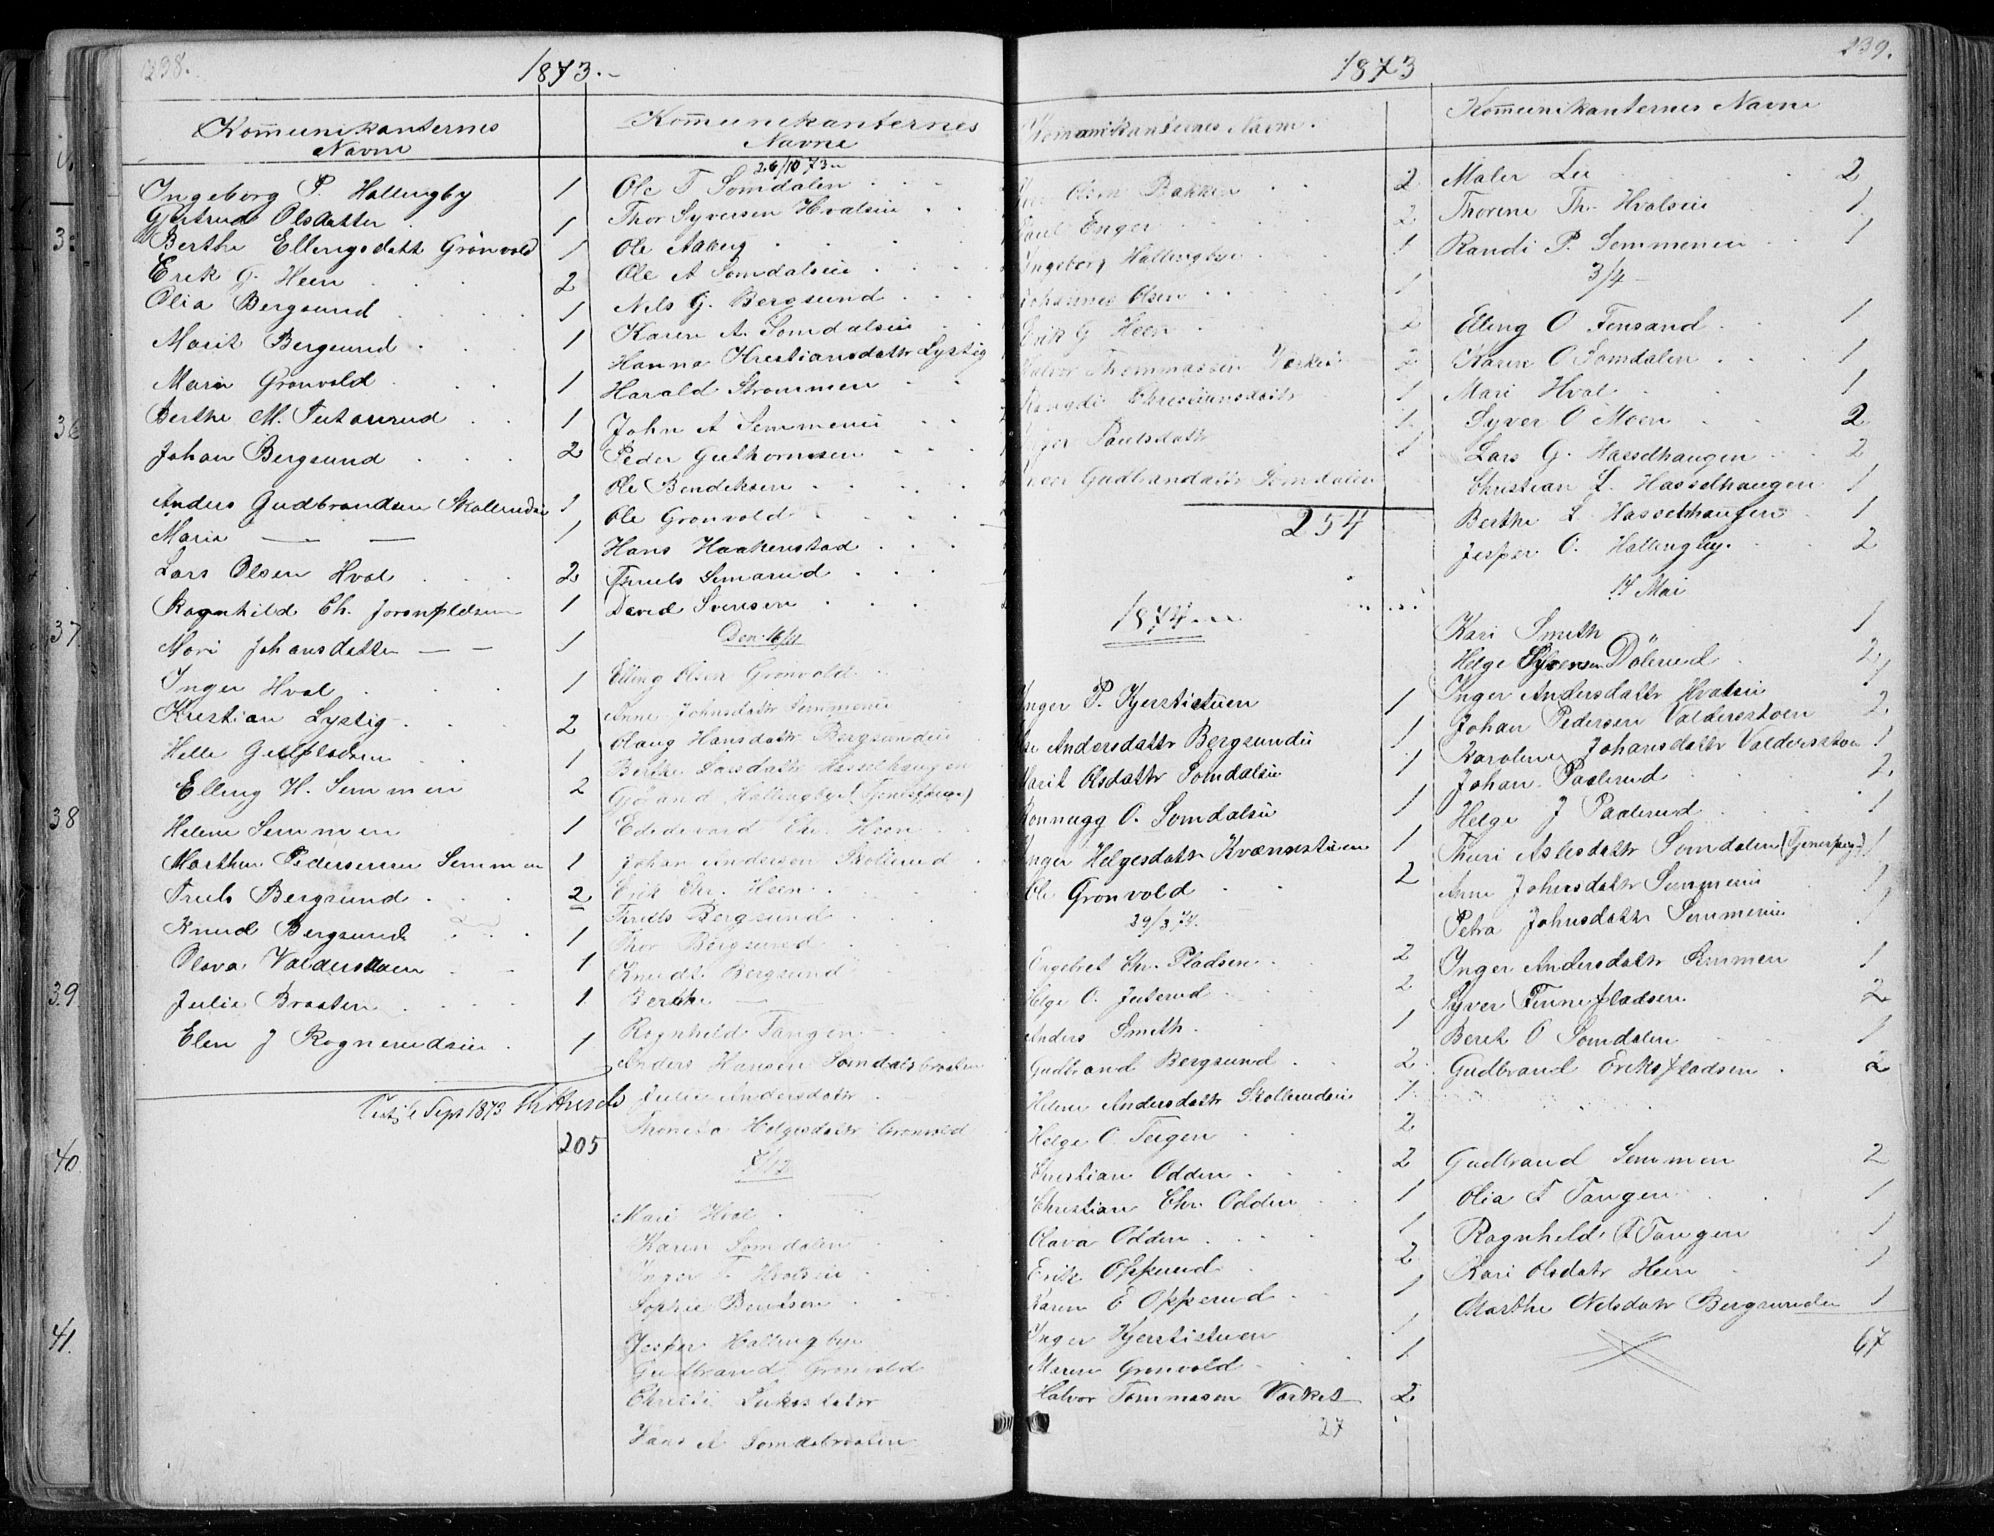 238.
1873.-
Kommunikanternes
Navne
Ingeborg P. Hallingby 1
Gjertrud Olsdatter 1
Berthe Ellingsdatt Grönvold 1
Erik G. Heen 2
Olia Bergsund 1
Marit Bergsund 1
Mari Gronvold 1
Berthe M. 1
Johan Bergsund 2
Anders Gudbrandsen Skollerudeie 1
Maria — — 1
Lars Olsen Hval 2
Ragnhild Ch. 1
Mari Johansdatter — — 1
Inger Hval 1
Kristian Lystig 2
Helle 1
Elling H. Semmen 2
Helene Semmen 1
Marthe Pedersen Semmen 1
Truls Bergsund 2
Knud Bergsund 1
Olava Valderstoen 1
Julie Braaten 1
Elen J Rognerudeie 1
Sept 1873
205
Kommunikanternes
Navne
26/10 73
Ole T Somdalen
Thor Syversen Hvalseie
Ole Aaberg
Ole A Somdalseie
Nils G. Bergsund
Karen A. Somdalseie
Hanna Kristiansdattr Lystig
Harald Strommen
John A Semmeneie
Peder Guthormsen
Ole Bendiksen
Ole Gronvold
Hans Haakenstad
Truels Semmerud
David Svensen
Den 16/11
Elling Olsen Gronvold
Anne Johnsdattr Semmeneie
Olaug Hansdattr Bergsundeie
Berthe Larsdattr Hasselhaugen
Gjörand Hallingbye (Tjenestpige)
Ededevard Chr. Heen
Johan Andersen Skollerud
Erik Chr. Heen
Truels Bergsund
Thor Bergsund
Knudt Bergsund
Berthe —
Ragnhild Tangen
Anders Hansen Somdalsbraaten
Julie Andersdattr
Thorela Helgesdattr Gronvold
7/12
Mari Hval
Karen Somdalen
Inger T. Hvalseie
Sophie Bentsen
Jesper Hallingbye
Gudbrand Gronvold
Christi Lukasdattr
Hans A Somdalbraaten
1873
239.
Kommunikanternes Navne.
Olsen Bakken 2
Paul Enger 2
Ingeborg Hallingbye 1
Johannes Olsen 1
Erik G Heen 2
Halvor Thommassen Vasket 2
Rangdi Christiansdattr 1
Inger Paulsdattr 1
Gudbrandsdattr Somdalen 1
254
1874
Inger P. Kjerstistuen 1
Andersdattr Bergsundeie 1
Marit Olsdattr Somdalseie 1
Ronnaug O. Somdalseie 1
Inger Helgesdattr Kværnestuen 1
Ole Gronvold 2
29/3 74.
Engebret Chr. Pladsen 2
Helge O. Juterud 2
Anders Smeth 1
Gudbrand Bergsund 2
Helene Andersdattr Skollerudeie 1
Helge O. Teigen 2
Christian Odden 2
Christian Chr. Odden 1
Olava Odden 1
Erik Opperud 2
Karen E Opperud 1
Inger Kjerstistuen 1
Maren Gronvold 1
Halvor Tommasen Vasket 2
27
Kommunikanternes Navne
Maler Lie 2
Thorine Th. Hvalseie 1
Randi P. Semmeneie 1
3/4 -
Elling O Fensand 1
Karen O Somdalen 1
Mari Hval 1
Syver O Moen 2
Lars G. Hasselhaugen 2
Christian L. Hasselhaugen 1
Berthe L Hasselhaugen 1
Jesper O. Hallingby. 2
14 Mai
Kari Smeth 1
Helge Syversen Dölerud 2
Inger Andersdattr Hvalseie 1
Johan Pedersen Valderstoen 2.
Karoline Johansdattr Valderstoen 1
Johan Paalerud 2.
Helge J Paalerud 1
Thuri Aslesdattr Somdalen (Tjenerpige) 1
Anne Johnsdattr Semmeneie 1
Petra Johnsdattr Semmeneie 1
Inger Andersdattr Semmen 1
Syver Finnefladsen 2
Berit O Somdalen 1
Gudbrand Eriksfladsen 2
Gudbrand Semmen 2
Olia T Tangen 1
Ragnhild T Tangen 1
Kari Olsdatr Heen 1
Marthe Nelsdatr Bergsundeie 1
67
36
37
38
39
40
41.